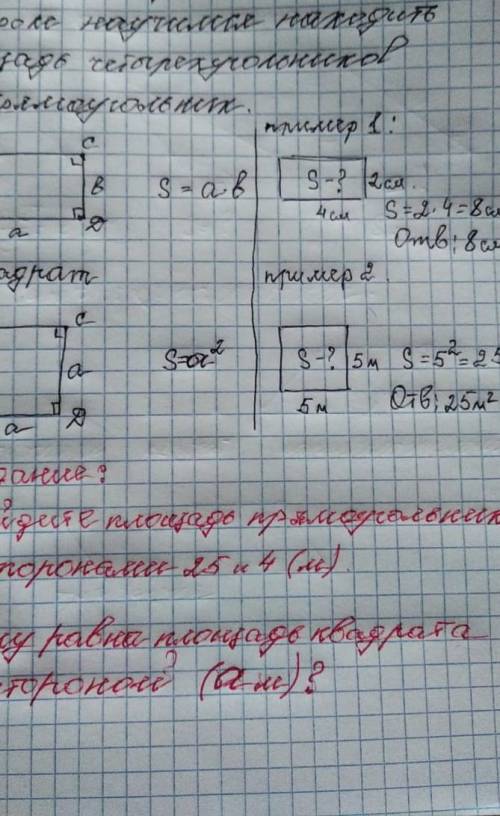 роке научимся находить
щадь четырехугольников
прямоугольник.
C
B
D
a
S = a·B
пример 1:
S-?
2см.
4см
S=2·4=8см
Отв: 8см
адрат
C
a
D
a
S=a²
пример 2.
S-?
5м
5м
S=5²=25
Отв: 25м²
дание:
йдите площадь прямоугольник
торонами 25 и 4 (м).
му равна площадь квадрата
стороной (a м)?